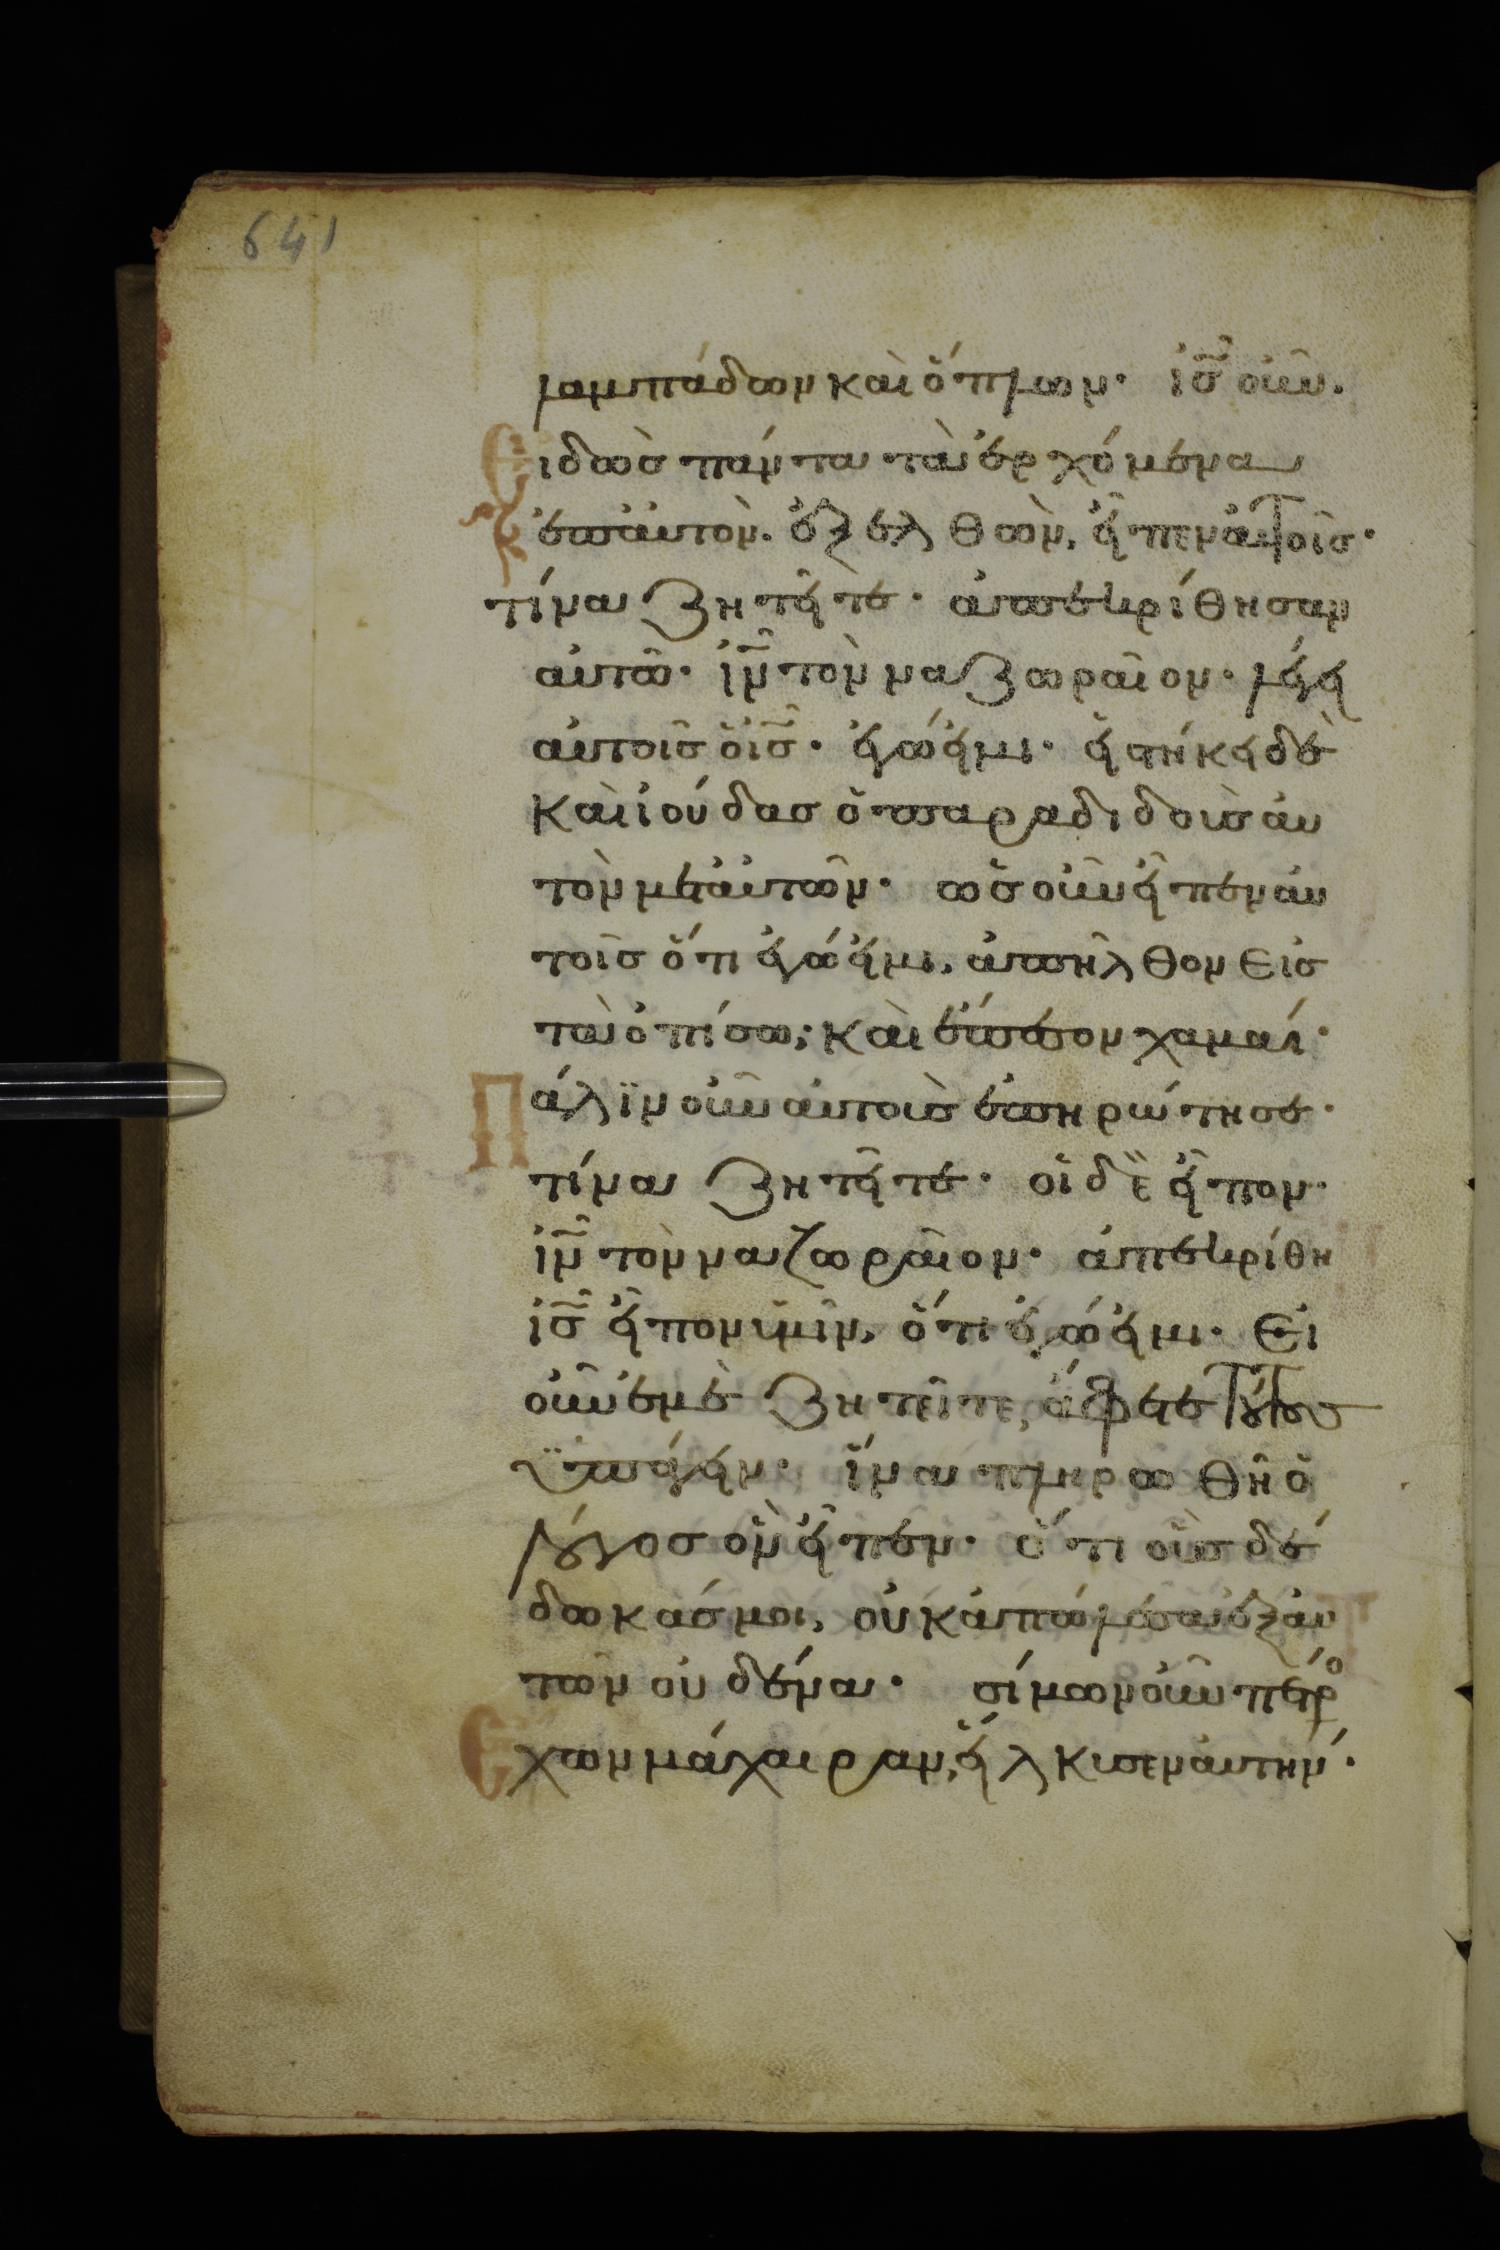 641
λαμπάδων καὶ ὅπλων· ἰ̅ς̅ οὖν.
Εἰδὼς πάντα τὰ ἐρχόμενα
ἐπ αὐτὸν. ἐξελθὼν, εἶπεν αὐτοῖς·
τίνα ζητεῖτε· ἀπεκρίθησαν
αὐτῶ· ἰ̅ν̅ τὸν ναζωραῖον· λέγει
αὐτοῖς ὁ ἰ̅ς̅· ἐγώ εἰμι· εἱστήκει δὲ
καὶ ἰούδας ὁ παραδιδοὺς αὐ
τὸν μετ αὐτῶν· ὡς οὖν εἶπεν αὐ
τοῖς ὅτι ἐγώ εἰμι, ἀπῆλθον εἰς
τὰ ὀπίσω, καὶ ἔπεσον χαμαί·
Πάλϊν οὖν αὐτοὺς ἐπηρώτησε·
τίνα ζητεῖτε· οἱ δὲ εἶπον·
ἰ̅ν̅ τὸν ναζωραῖον· ἀπεκρίθη
ἰ̅ς̅ εἶπον ὑμῖν, ὅτι ἐγώ εἰμι· Εἰ
οὖν ἐμὲ ζητεῖτε, ἄφετε τούτους
ϋπάγειν· ἵνα πληρωθῆ ὁ
λόγος ὃν εἶπεν· ὅτι οὓς δέ
δωκάς μοι, οὐκ ἀπώλεσα ἐξ αὐ
τῶν οὐδένα· σίμων οὖν πέτρο
Ἔχων μάχαιραν, εἵλκυσεν αὐτήν·